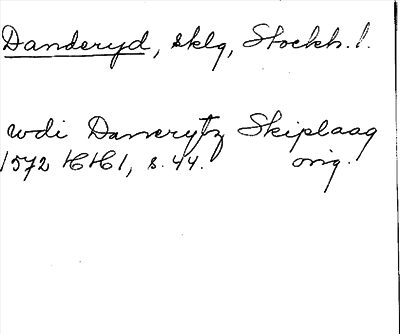 Danderyd, sklg, Stockh. l.
wdi Danrerytz Skiplaag
1572 HH 1, s. 44. orig.